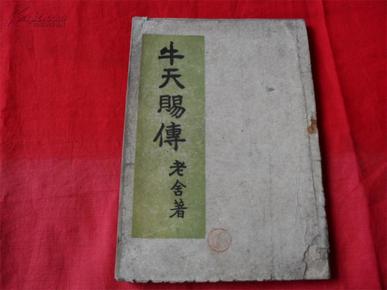 牛天賜傳
老舍著